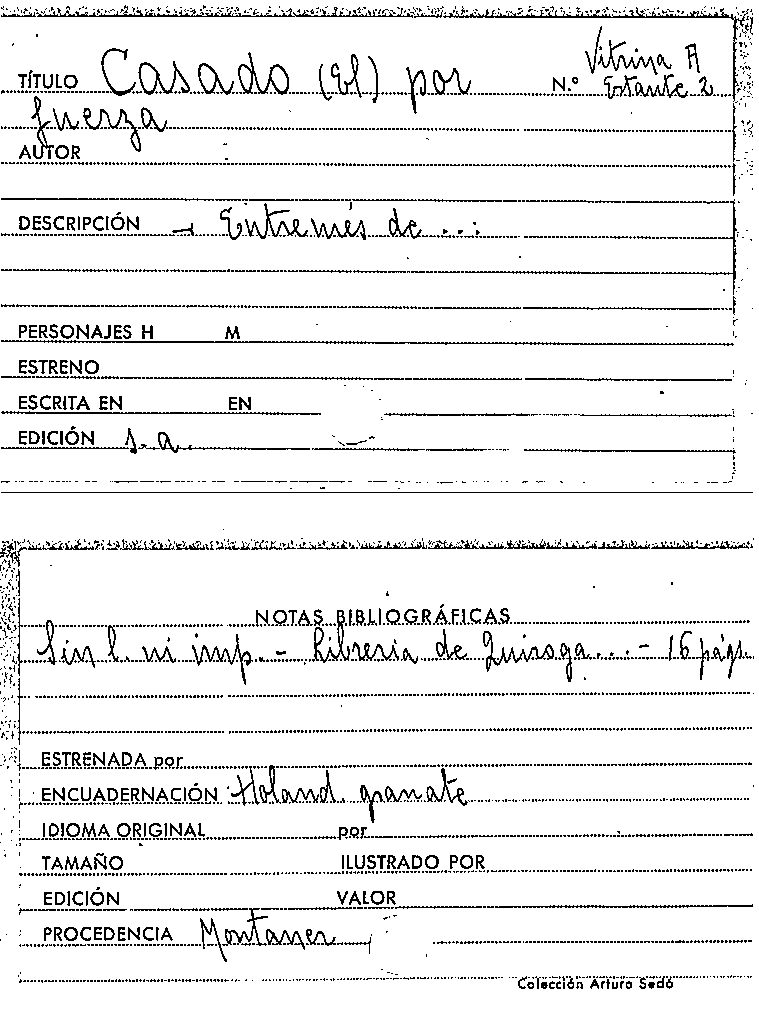 Vitrina A
TÍTULO Casado (El) por N.º Estante 2
fuerza
AUTOR
DESCRIPCIÓN - Entremés de ...
PERSONAJES H M
ESTRENO
ESCRITA EN EN
EDICIÓN s.a.
NOTAS BIBLIOGRÁFICAS
Sin l. ni imp. - Librería de Quiroga... - 16 págs.
ESTRENADA por
ENCUADERNACIÓN Holand. granate
IDIOMA ORIGINAL por
TAMAÑO ILUSTRADO POR
EDICIÓN VALOR
PROCEDENCIA Montaner
Colección Arturo Sedó